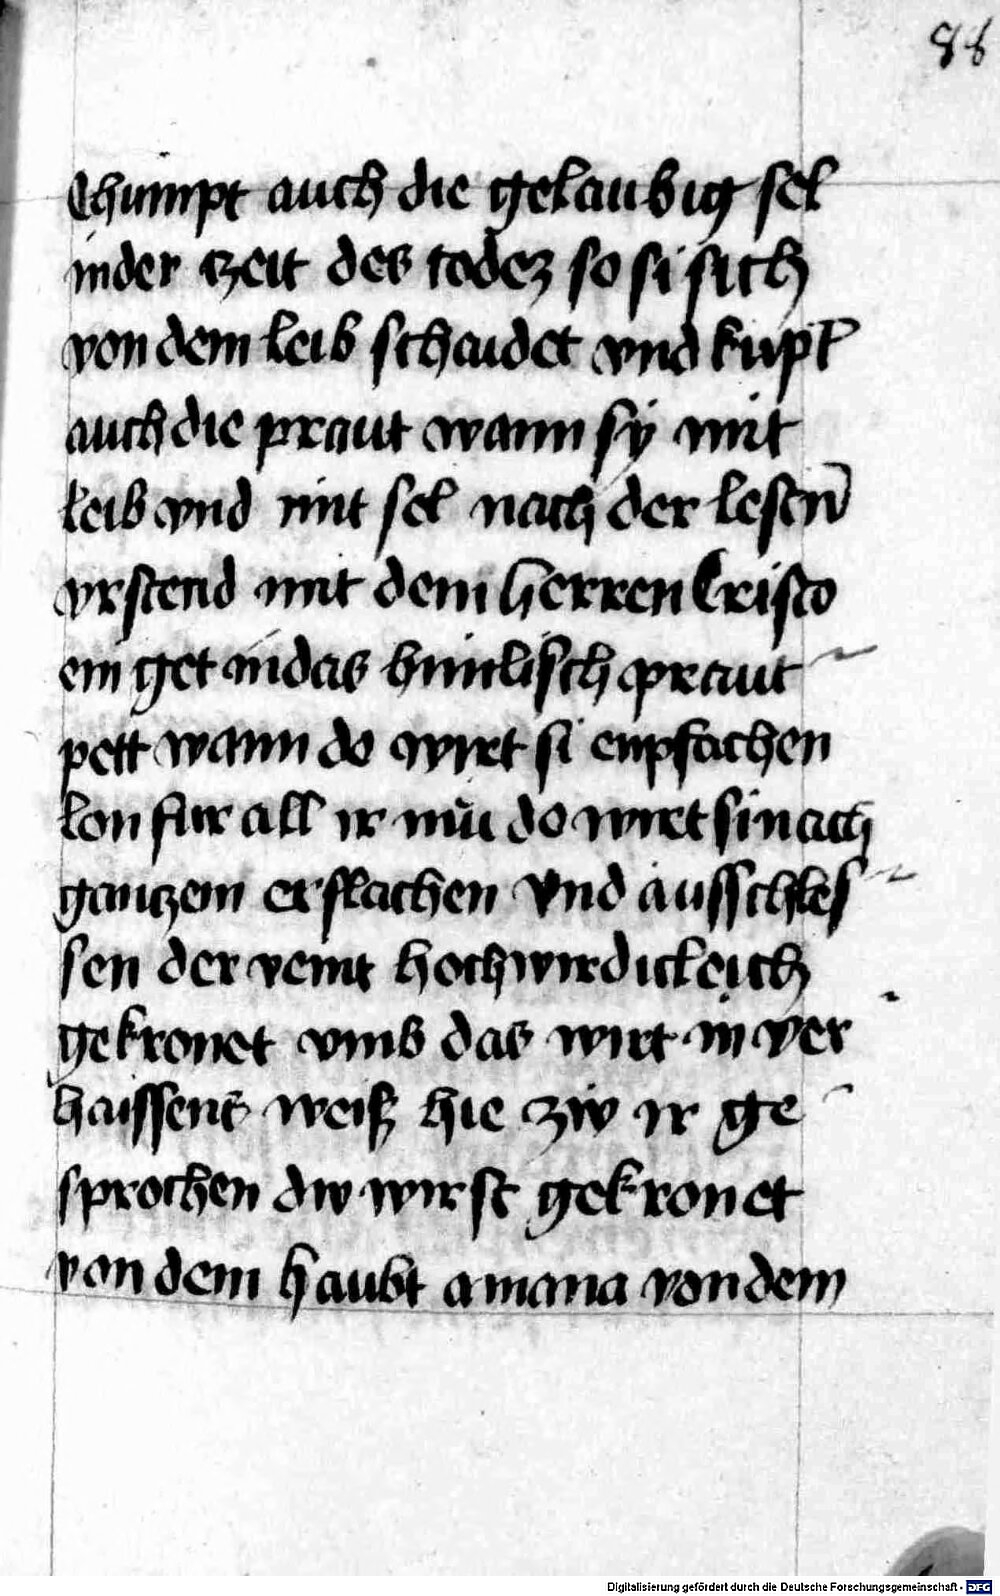 88
Chumpt auch die gelaubig sel
in der tzeit des todez so si sich
von dem leib schaidet vnd kupt̄
auch die praut wann sÿ mit
leib vnd mit sel nach der lesten̄
vrstend mit dem herren Cristo
ein get in das himlisch praut
pett wann do wirt si enpfachen
lon fur all ir mü do wirt si nach
gantzem erslachen vnd ausschles
sen der veint hochwirdicleich
gekronet vmb das wirt in ver
haissent weiß hie zw ir ge
sprochen dw wirst gekronet
von dem haubt amana von dem
Digitalisierung gefördert durch die Deutsche Forschungsgemeinschaft - DFG